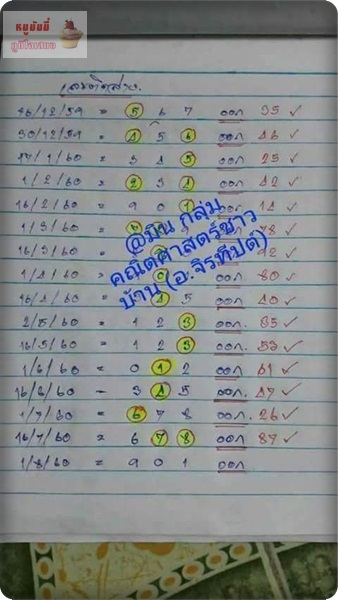 หมูบัมมี่
ภูมิใจเสนอ
เลขติดล่าง.
16/12/59 = 5 6 7 ออก 35 ✓
30/12/59 = 4 5 6 ออก 46 ✓
17/1/60 = 3 4 5 ออก 25 ✓
1/2/60 = 2 3 4 ออก 42 ✓
16/2/60 = 9 0 1 ออก 14 ✓
1/3/60 = ออก 78 ✓
16/3/60 = ออก 92 ✓
1/4/60 = ออก 80 ✓
16/4/60 = 5 ออก 40 ✓
2/5/60 = 1 2 3 ออก. 35 ✓
16/5/60 = 1 2 3 ออก. 53 ✓
1/6/60 = 0 1 2 ออก 61 ✓
16/6/60 = 3 4 5 ออก. 47 ✓
1/7/60 = 6 7 8 ออก. 26 ✓
16/7/60 = 6 7 8 ออก. 87 ✓
1/8/60 = 9 0 1 ออก
@มิน กลุ่ม
คณิตศาสตร์ชาว
บ้าน (อ.จิรทีปต์)